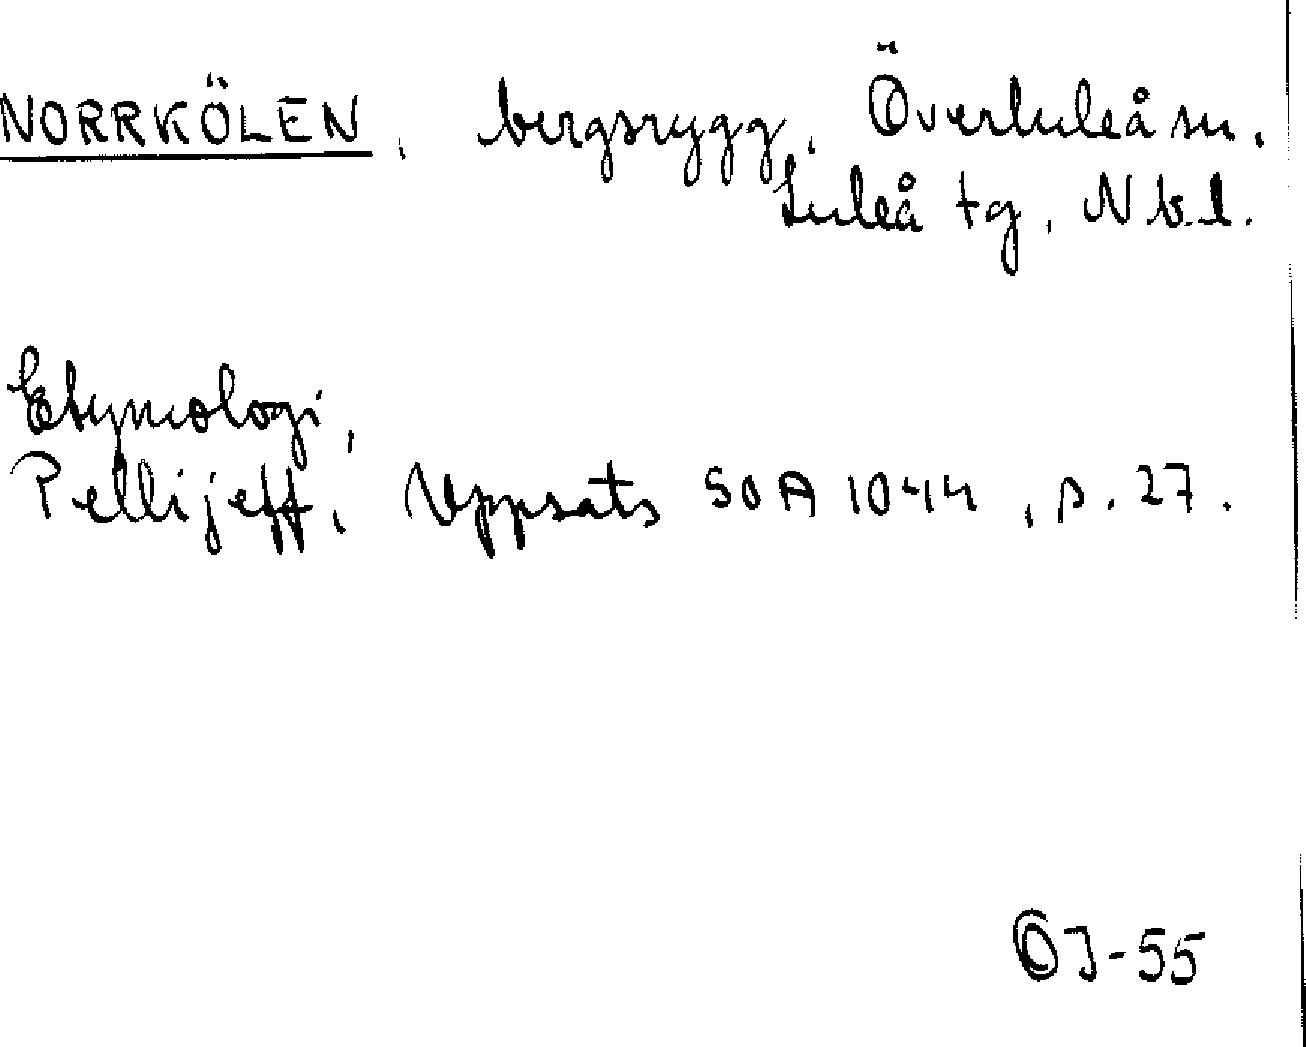 NORRKÖLEN, bergsrygg, Överluleå sn.
Luleå tg, Nb.l.
Etymologi,
Pellijeff, Uppsats SOA 1044, s. 27.
OJ-55